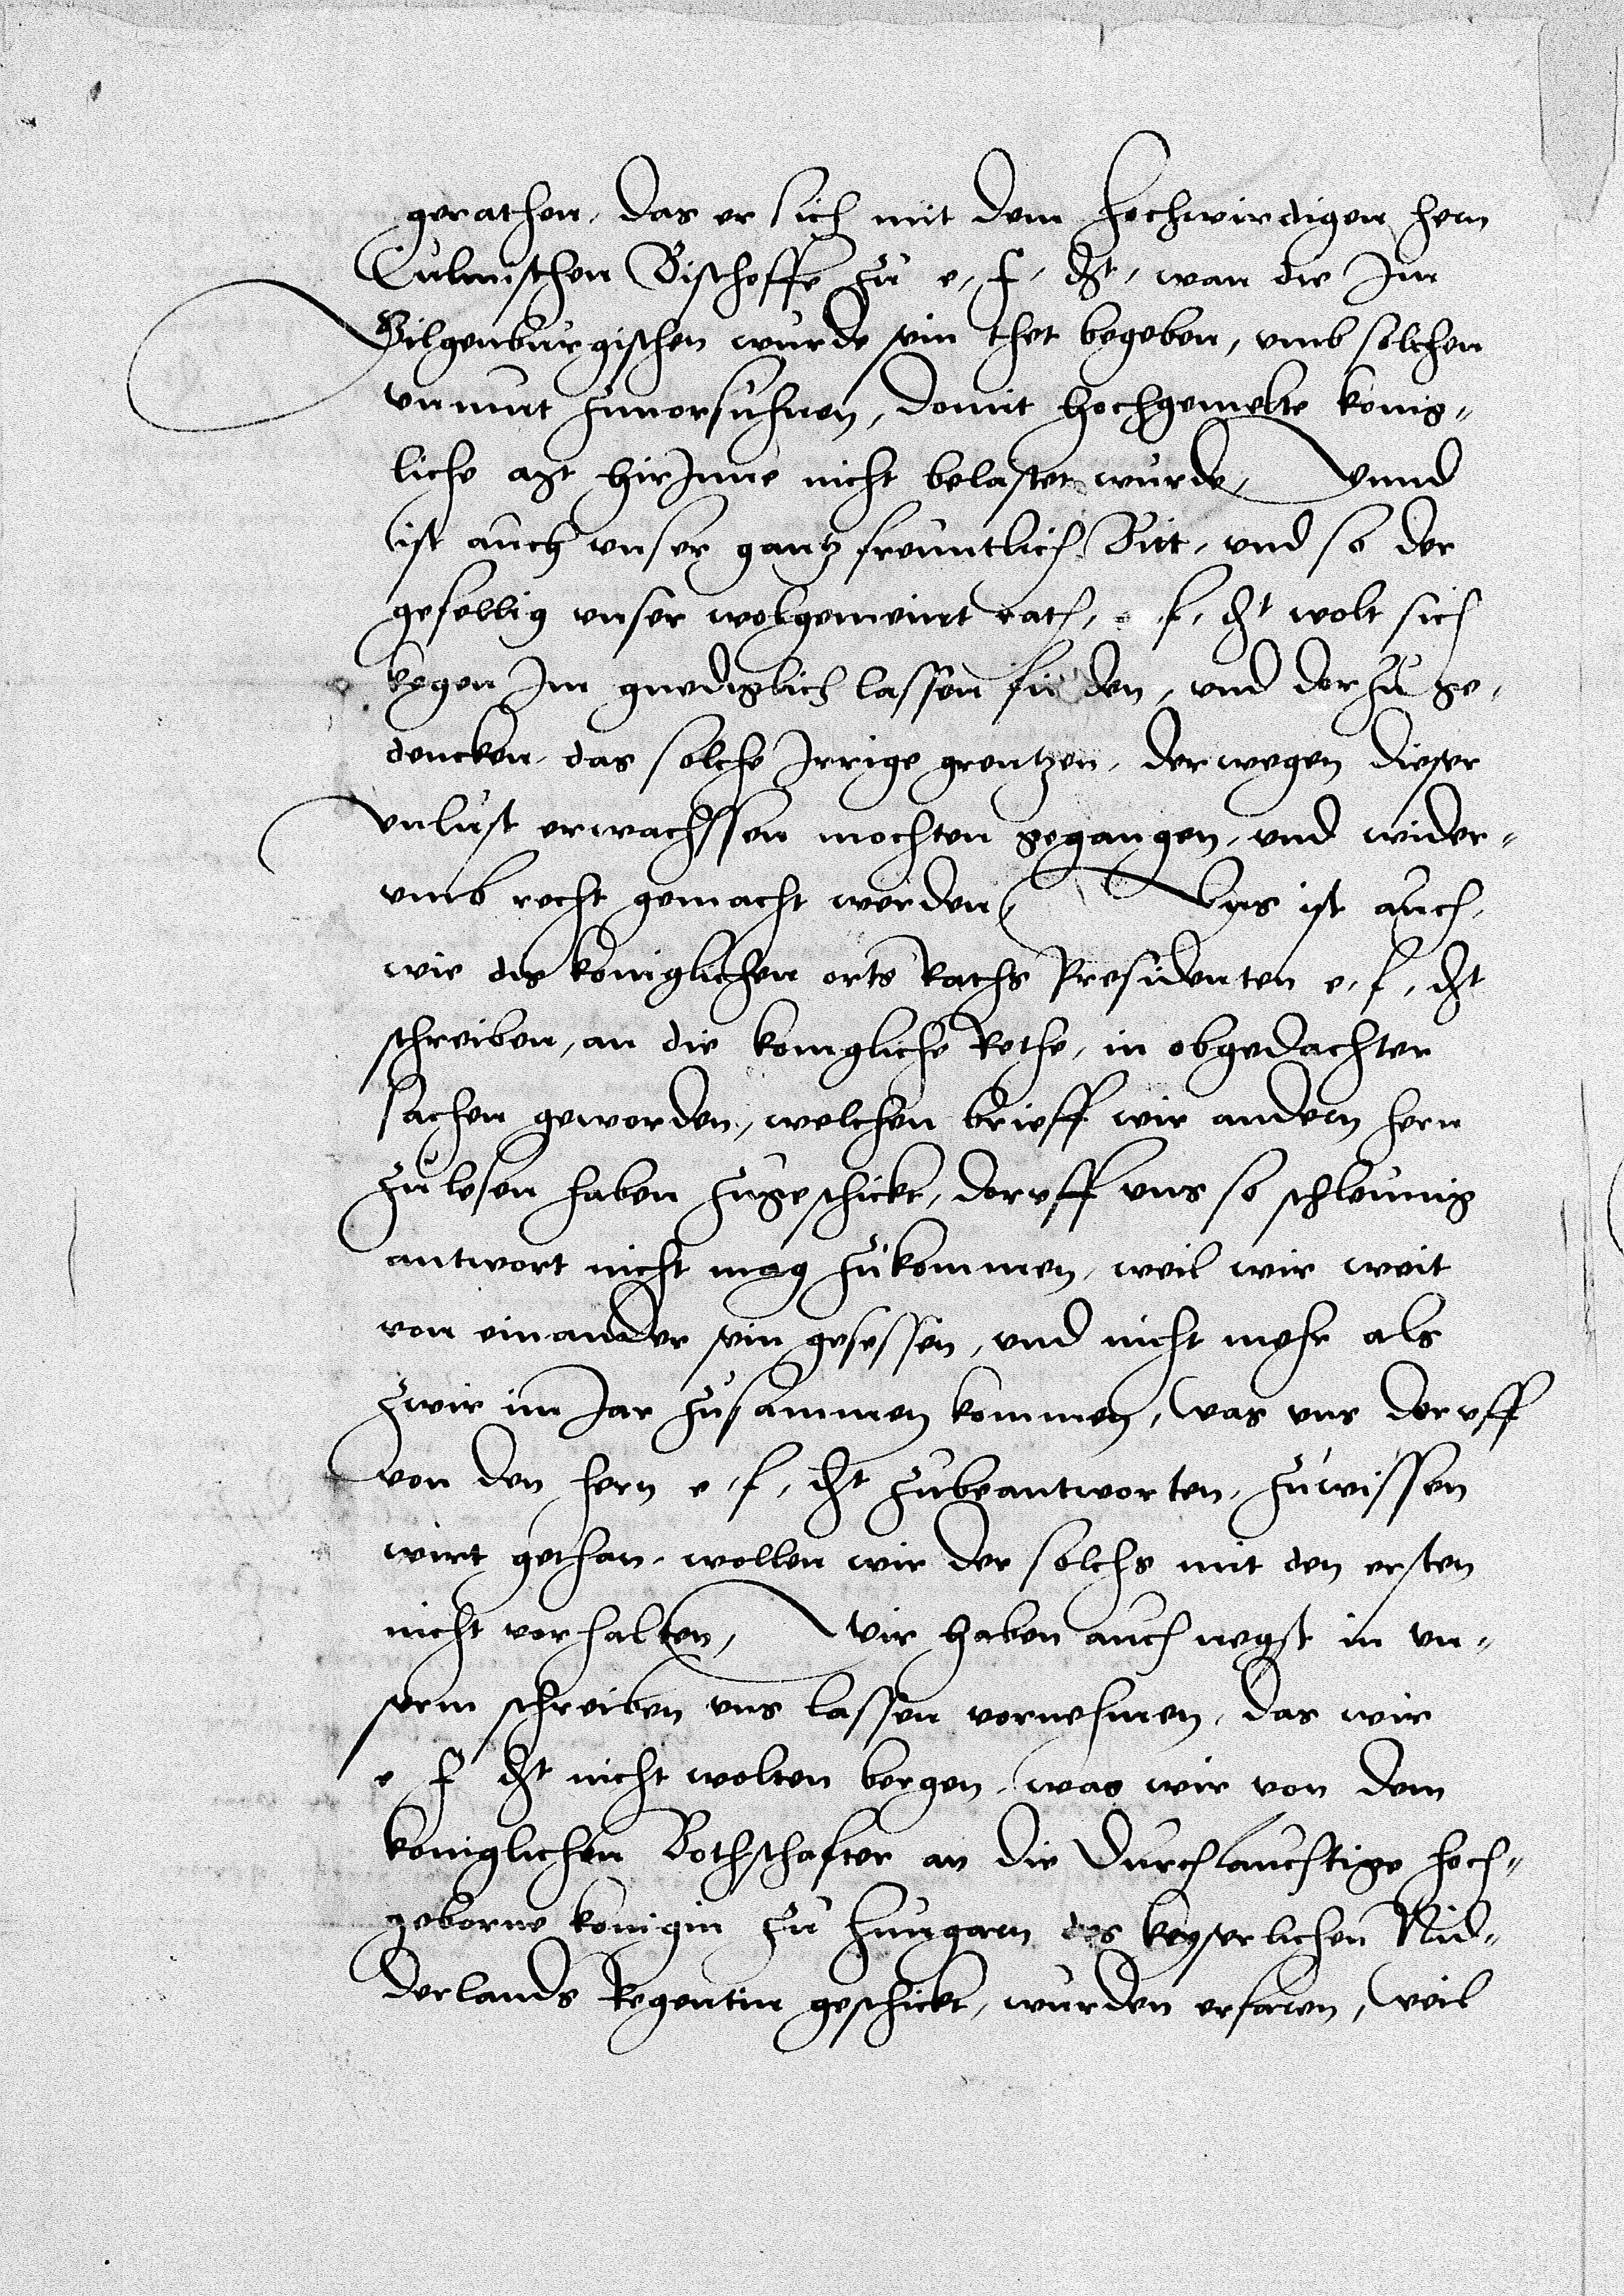 gerathen, das er sich mit dem hochwirdigen hern
Culmischen Bischoffe zu e, f, dt, wan die Im
Gilgenburgischen wurde sein thet begeben, umb solchen
unmut zuuorsuhnen, domit hochgemelte konig-
liche mt hirInne nicht belastet wurde, Vnnd
ist auch unser gantz freuntlich Bitt, und so der
gefellig unser wolgemeint rath, e f, dt wolt sich
kegen Im gnediglich lassen finden, und dorzu ge-
dencken, das solche Irrige grentzen, derwegen dieser
unlust erwachssen mochten gegangen, und wider-
umb recht gemacht werden Vns ist auch,
wie des koniglichen orts Raths Presidenten e, f, dt
schreiben, an die konigliche Rethe, in obgedachter
sachen geworden, welchen brieff wir andern hern
zu lesen haben zugeschickt, doruff uns so schleunig
antwort nicht mag zukommen, weil wir weit
von einander sein gesessen, und nicht mehr als
zwir im Jar zusammen kommen, Was uns doruff
von den hern e, f, dt zubeantworten, zuwissen
wirt gethan, wollen wir der solchs mit den ersten
nicht vorhalten, Wir haben auch negst in un-
serm schreiben uns lassen vornehmen, das wir
e f dt nicht wolten bergen, was wir von dem
koniglichen Bothschafter an die Durchlauchtige hoch-
geborne konigin zu Hungarn des keyserlichen Nid-
derlands Regentin geschickt, wurden erfaren, Weil